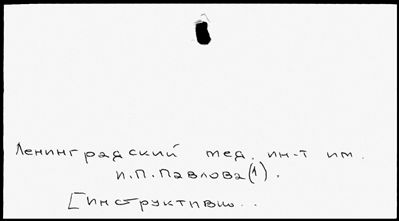 Ленинградский мед. ин-т им.
И.П. Павлова (1).
[Инструктивн..